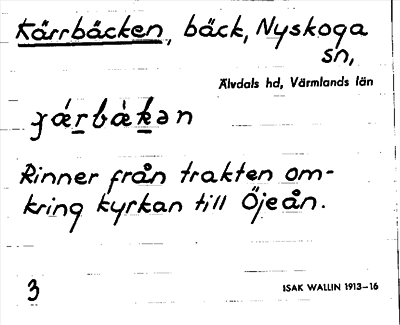 Kärrbäcken, bäck, Nyskoga
sn,
Älvdals hd, Värmlands län
Rinner från trakten om-
kring kyrkan till Öjeån.
3
ISAK WALLIN 1913–16